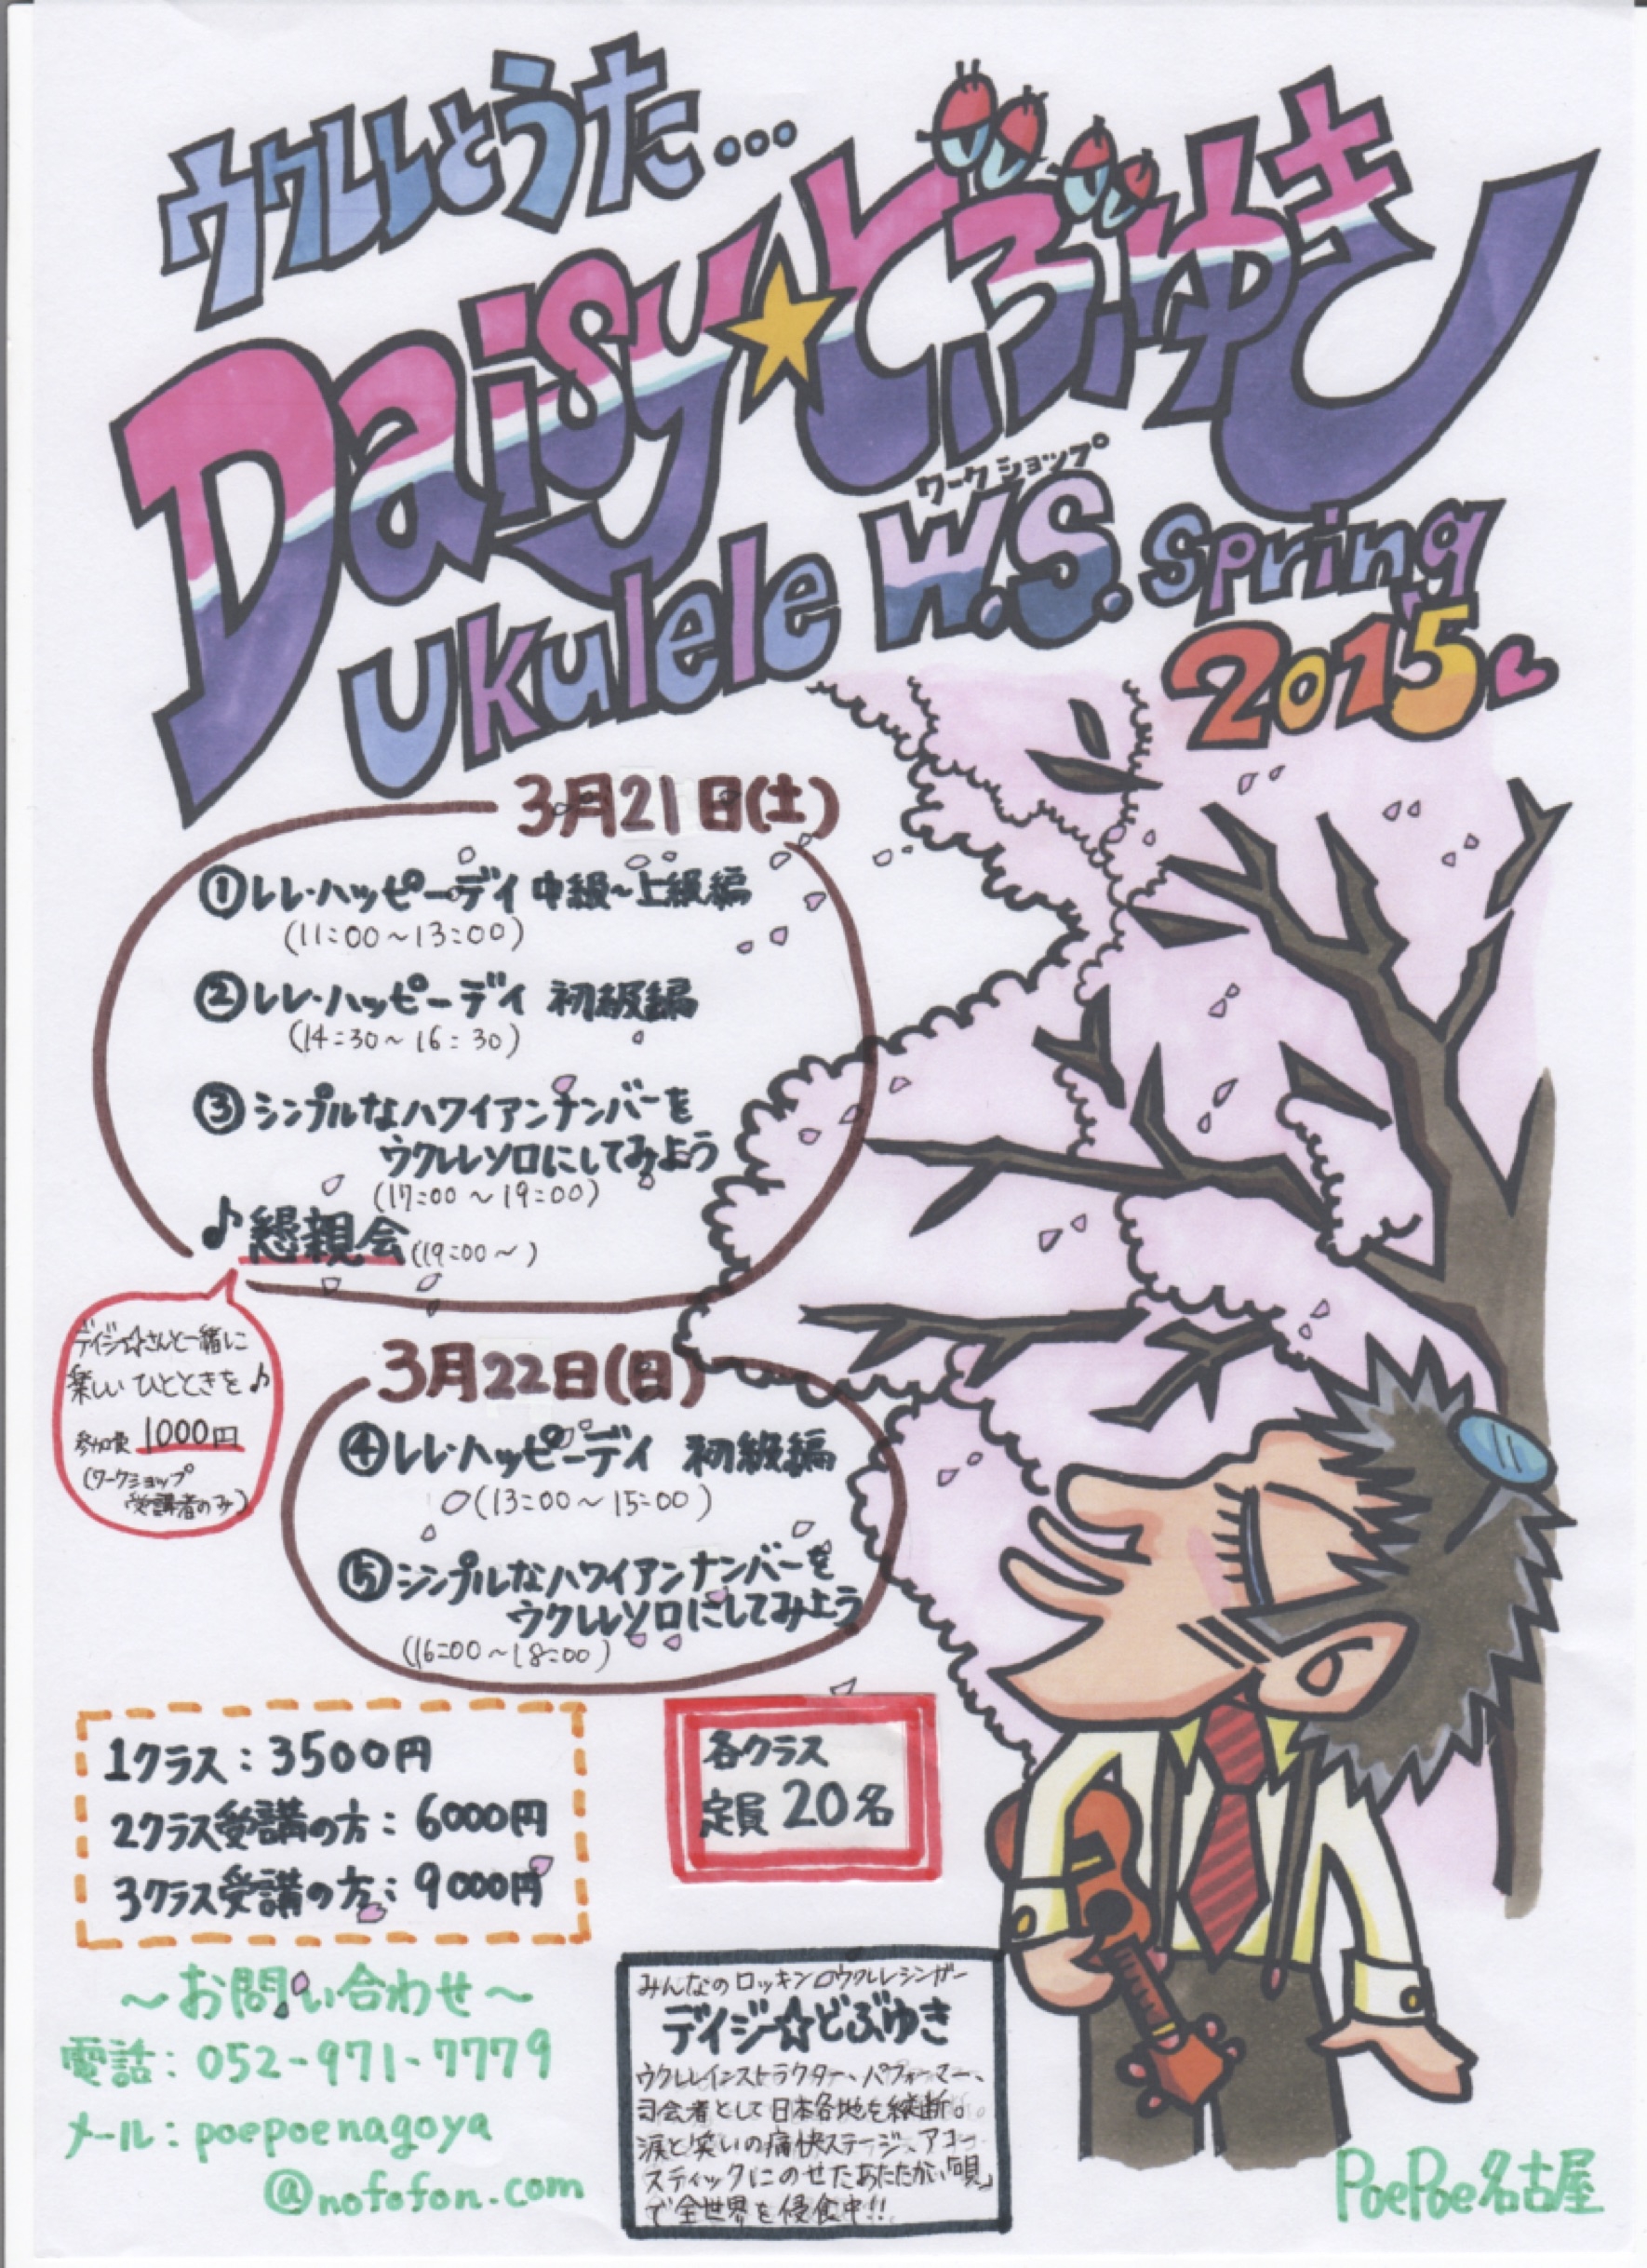 ウクレレとうた...
Daisy☆どぶゆき
ワークショップ
ukulele W.S. spring
2015
3月21日(土)
①レレ・ハッピーデイ 中級～上級編
(11:00～13:00)
②レレ・ハッピーデイ 初級編
(14:30～16:30)
③シンプルなハワイアンナンバーを
ウクレレソロにしてみよう
(17:00～19:00)
♪懇親会(19:00～)
デイジ☆さんと一緒に
楽しいひとときを♪
参加費 1000円
(ワークショップ
受講者のみ)
3月22日(日)
④レレ・ハッピーデイ 初級編
(13:00～15:00)
⑤シンプルなハワイアンナンバーを
ウクレレソロにしてみよう
(16:00～18:00)
1クラス：3500円
2クラス受講の方：6000円
3クラス受講の方：9000円
各クラス
定員 20名
～お問い合わせ～
電話：052-971-7779
メール：poepoenagoya
@nofofon.com
みんなのロッキンロウクレレシンガー
デイジ☆どぶゆき
ウクレレインストラクター、パフォーマー、
司会者として日本各地を縦断。
涙と笑いの痛快ステージ、アコー
スティックにのせたあたたかい「唄」
で全世界を侵食中!!
PoePoe名古屋